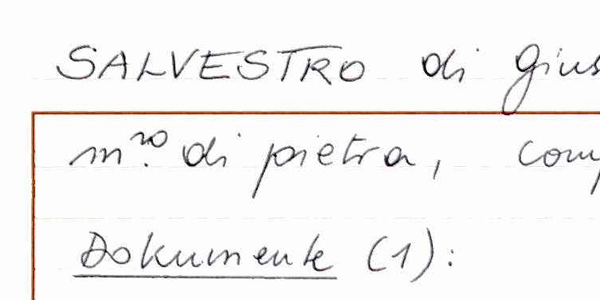 SALVESTRO di
m.ro di pietra,
Dokumente (1):